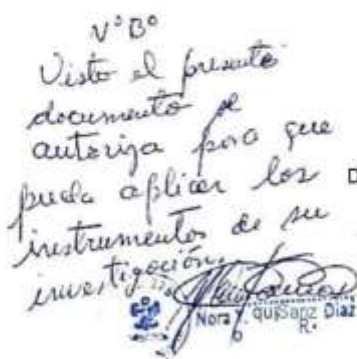 V°B°
Visto el presente
documento se
autoriza para que
pueda aplicar los
instrumentos de su
investigación.
D
Nora
Sanz Diaz
R.